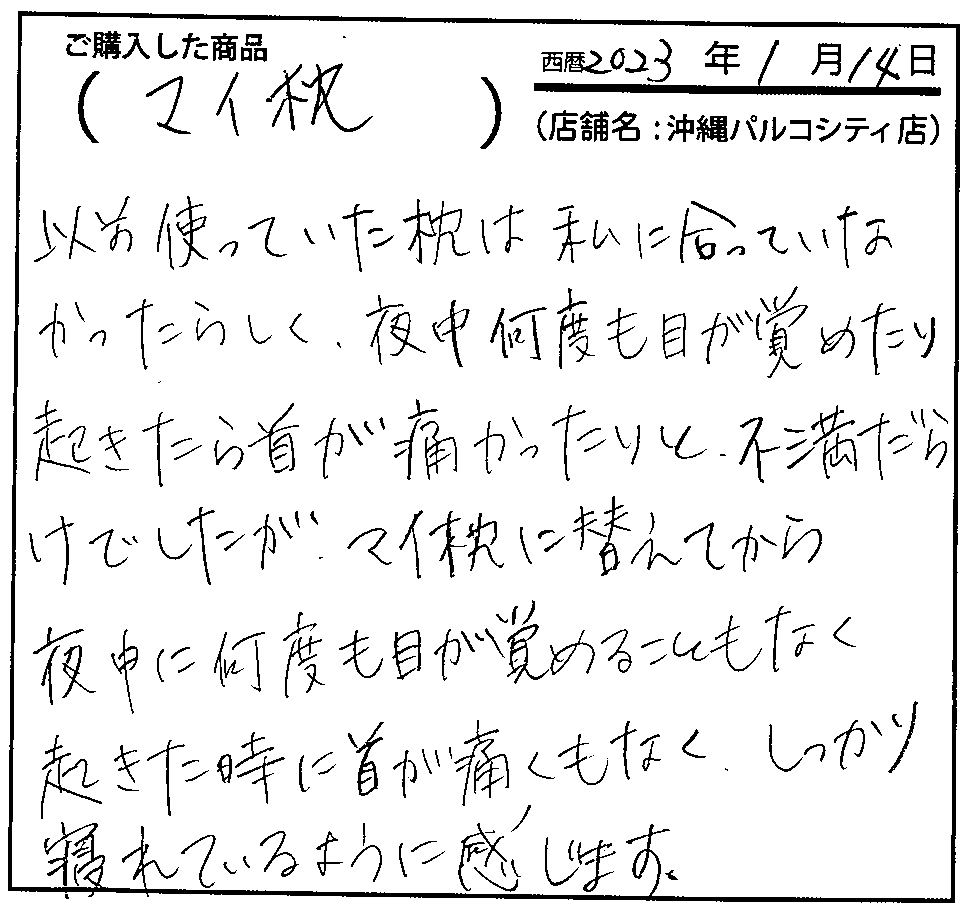 ご購入した商品
(マイ枕)
西暦2023年1月14日
(店舗名:沖縄パルコシティ店)
以前使っていた枕は私に合っていな
かったらしく、夜中何度も目が覚めたり
起きたら首が痛かったりと、不満だら
けでしたが、マイ枕に替えてから
夜中に何度も目が覚めることもなく
起きた時に首が痛くもなく、しっかり
寝れているように感じます。